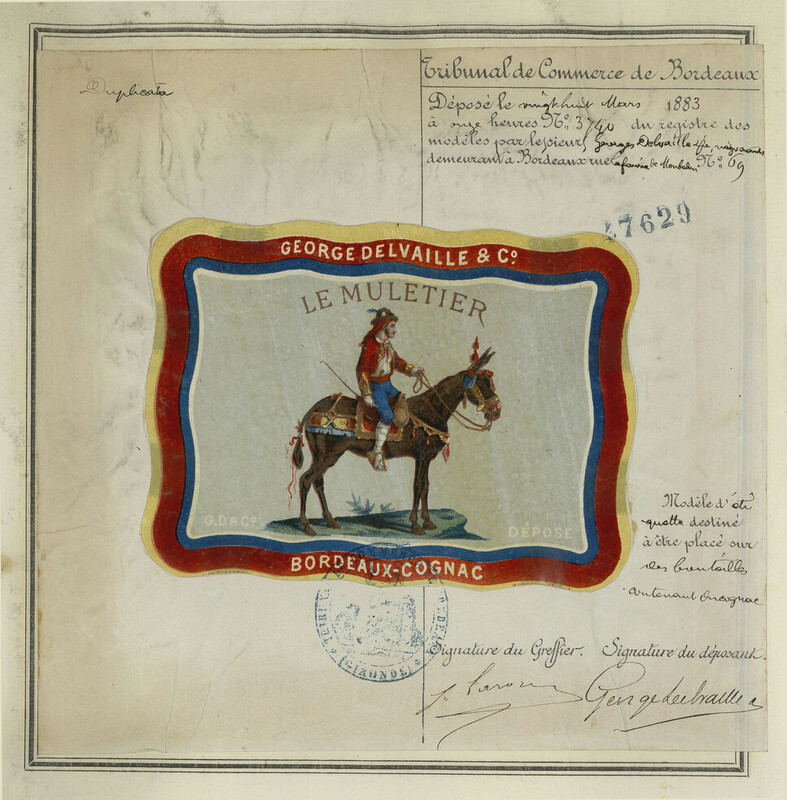 Duplicata
Tribunal de Commerce de Bordeaux
Déposé le vingt huit Mars 1883
à onze heures Nº 3740 du registre des
modèles par le sieurs Georges Delvaille & Cie, négociants
demeurant à Bordeaux rue Nº 69
47629
GEORGE DELVAILLE & Cº.
LE MULETIER
G.D & Cº
DÉPOSÉ
BORDEAUX-COGNAC
Modèle d'éti
quette destiné
à être placé sur
des bouteilles
contenant du cognac
(GIRONDE)
Signature du Greffier. Signature du déposant.
George Delvaille